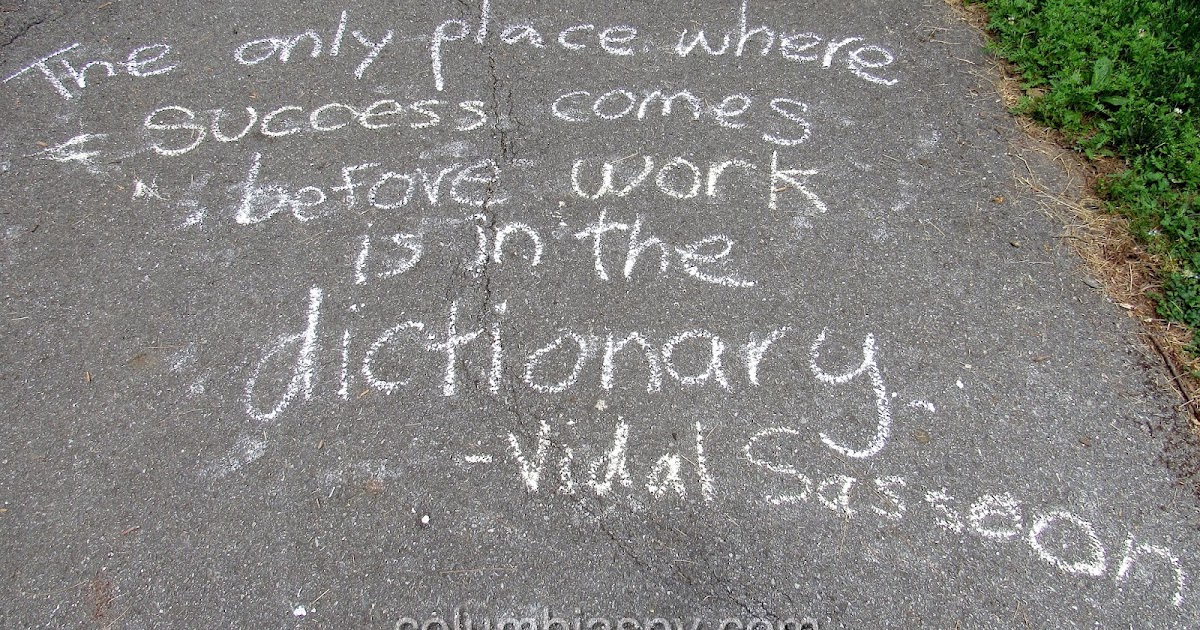 The only place where
success comes
before work
is in the
dictionary-
-Vidal Sassoon
columbiaspy.com